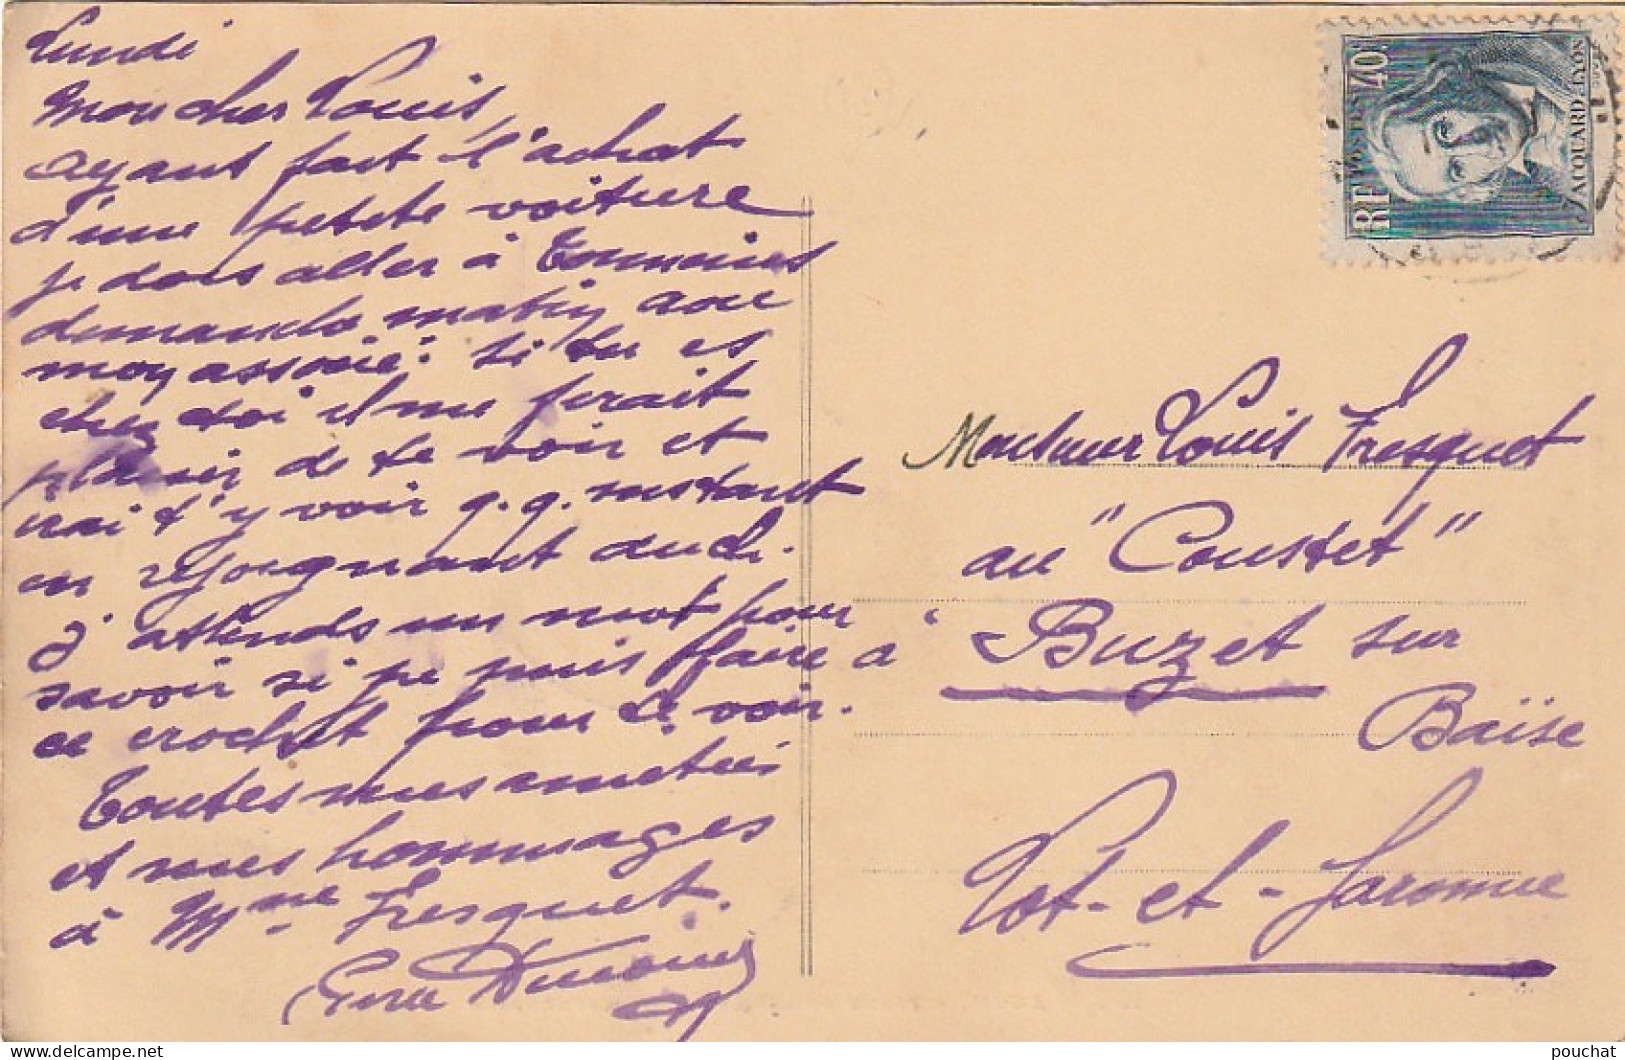 Lundi
Mon cher Louis,
ayant fait l'achat
d'une petite voiture
je dois aller à Tonneins
demande matin avec
mon associé: si tu es
chez toi il me ferait
plaisir de te voir et
irai t'y voir q.q. instant
en rejoignant Auch.
J'attends un mot pour
savoir si je puis faire
ce crochet pour te voir.
Toutes mes amitiés
et mes hommages
à Mme Fresquet.
RF POSTES 40c
JACQUARD-LYON
Monsieur Louis Fresquet
au "Coustet"
à Buzet sur
Baïse
Lot-et-Garonne
pouchat